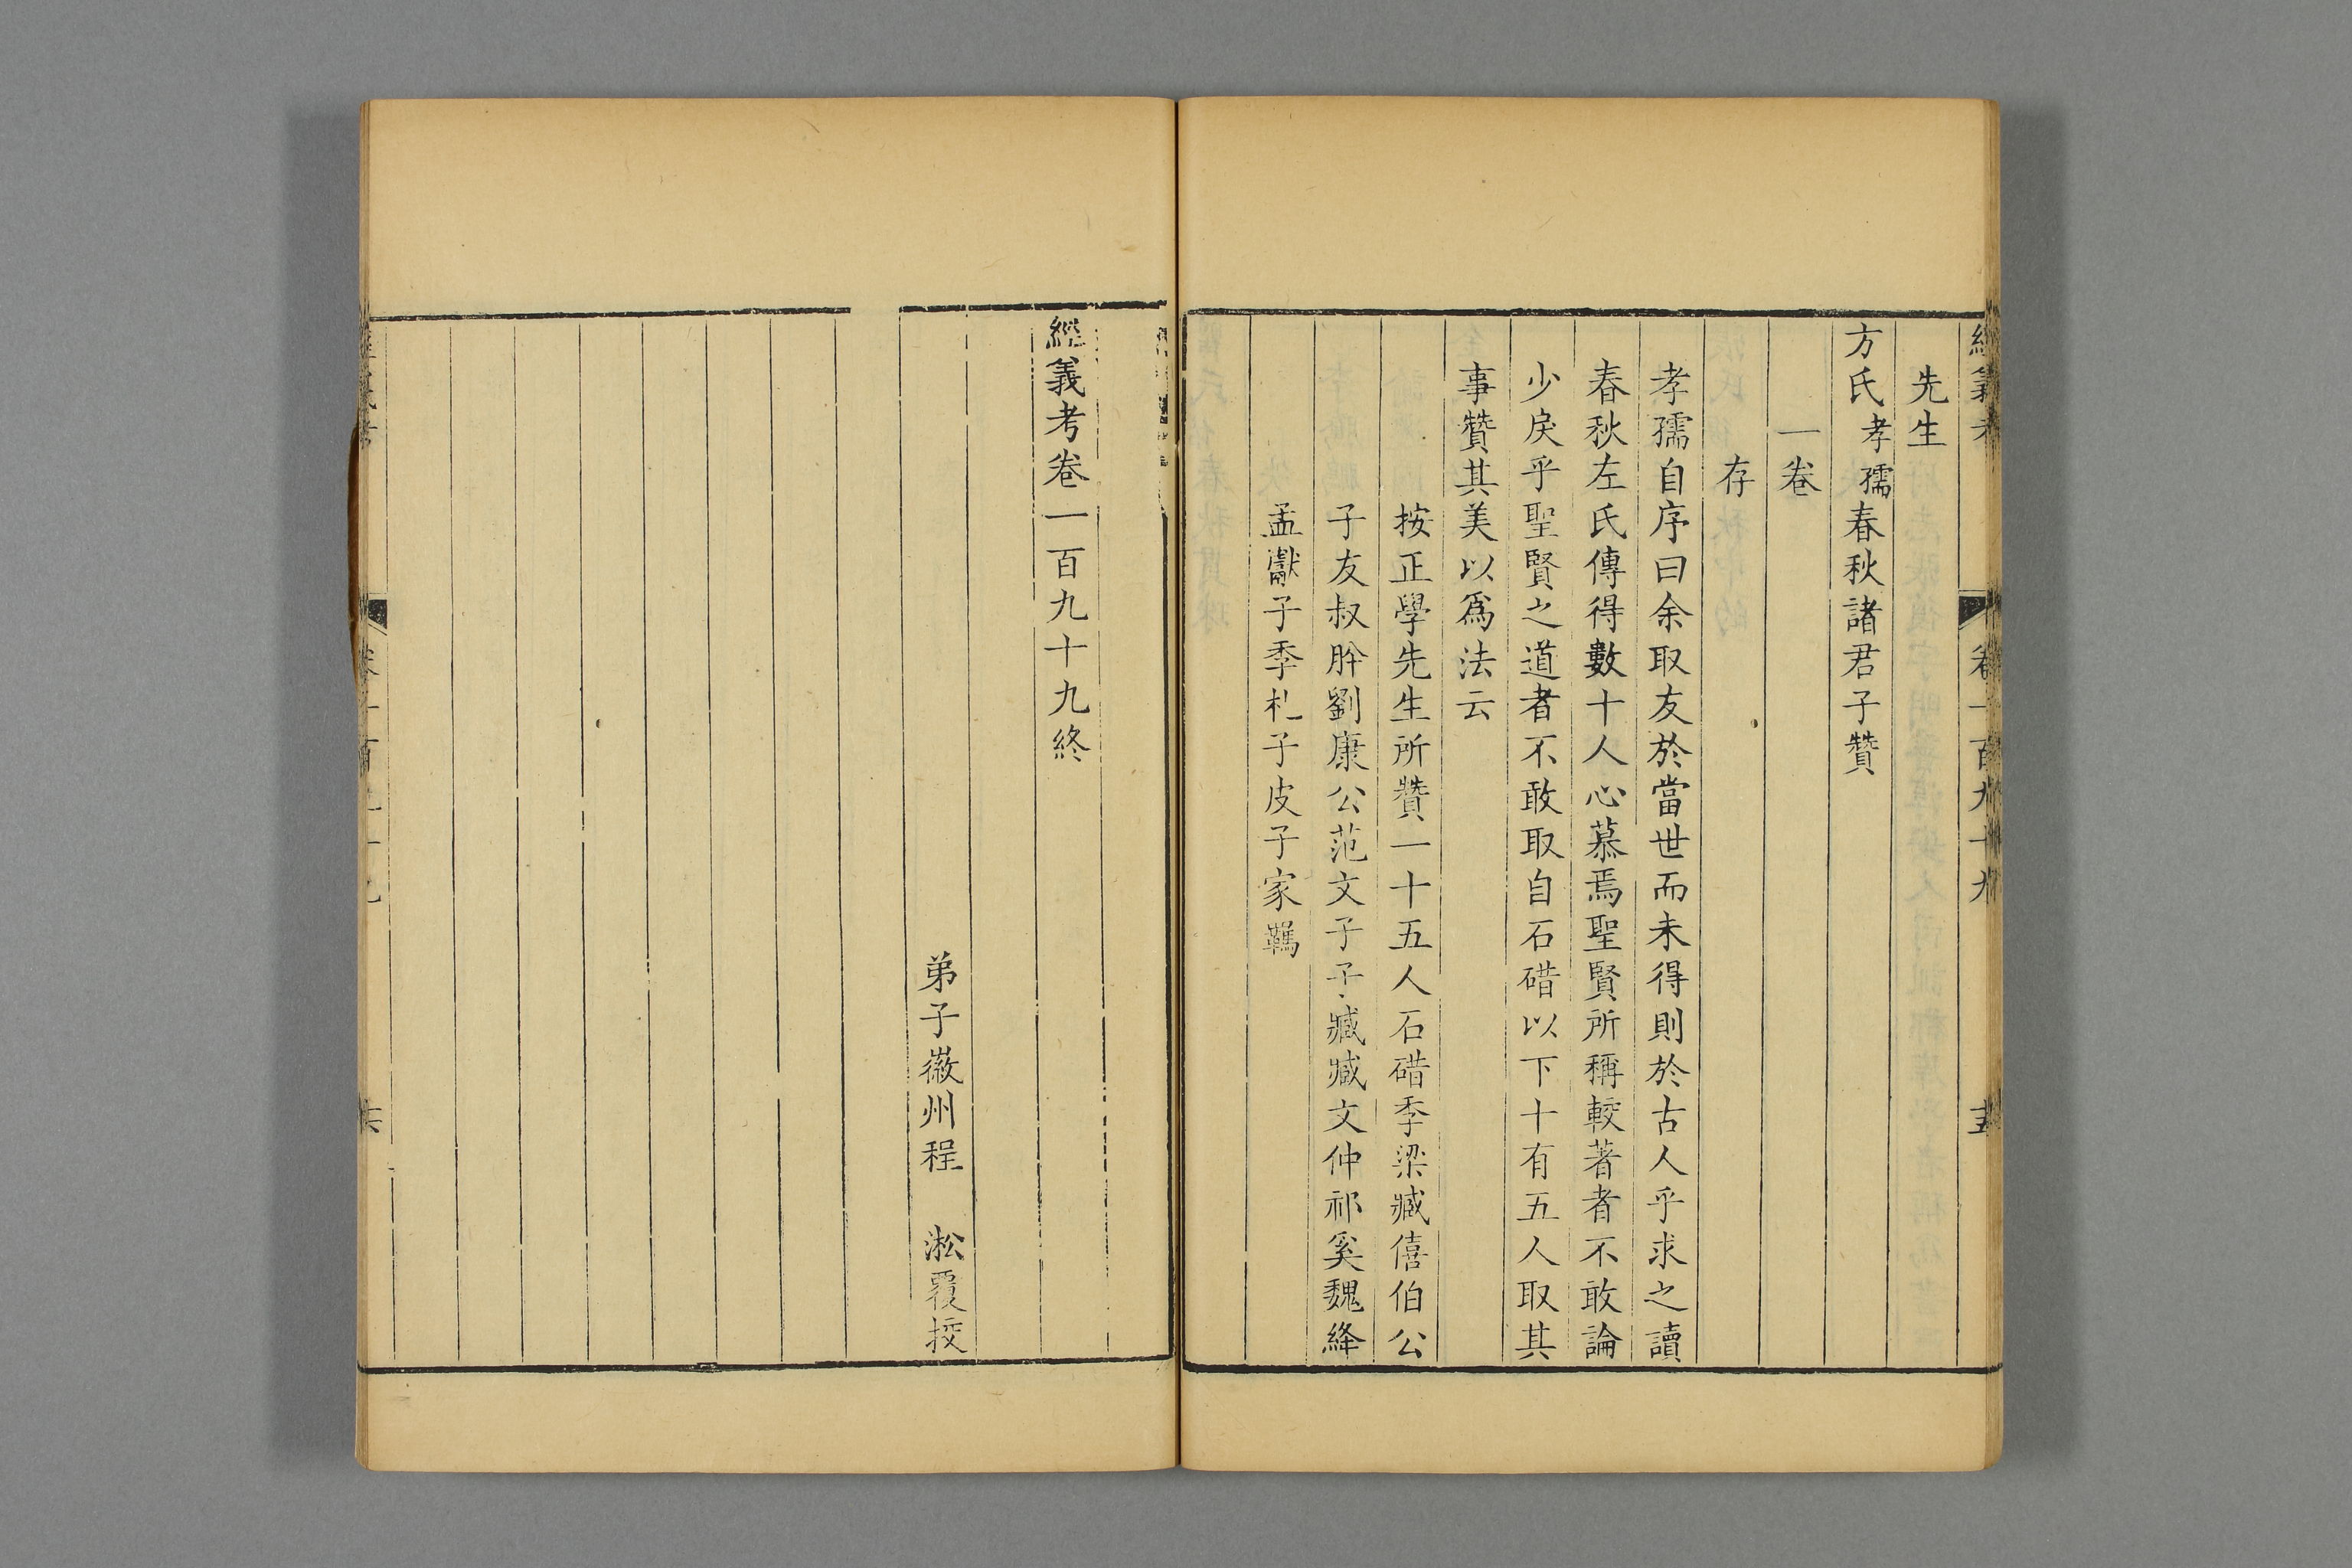 先生
方氏孝孺春秋諸君子贊
一卷
存
孝孺自序曰余取友於當世而未得則於古人乎求之讀
春秋左氏傳得數十人心慕焉聖賢所稱較著者不敢論
少戾乎聖賢之道者不敢取自石碏以下十有五人取其
事贊其美以爲法云
按正學先生所贊一十五人石碏季梁臧僖伯公
子友叔肸劉康公范文子子臧臧文仲祁奚魏絳
孟獻子季札子皮子家羈
經義考卷一百九十九終
弟子徽州程 淞覆挍